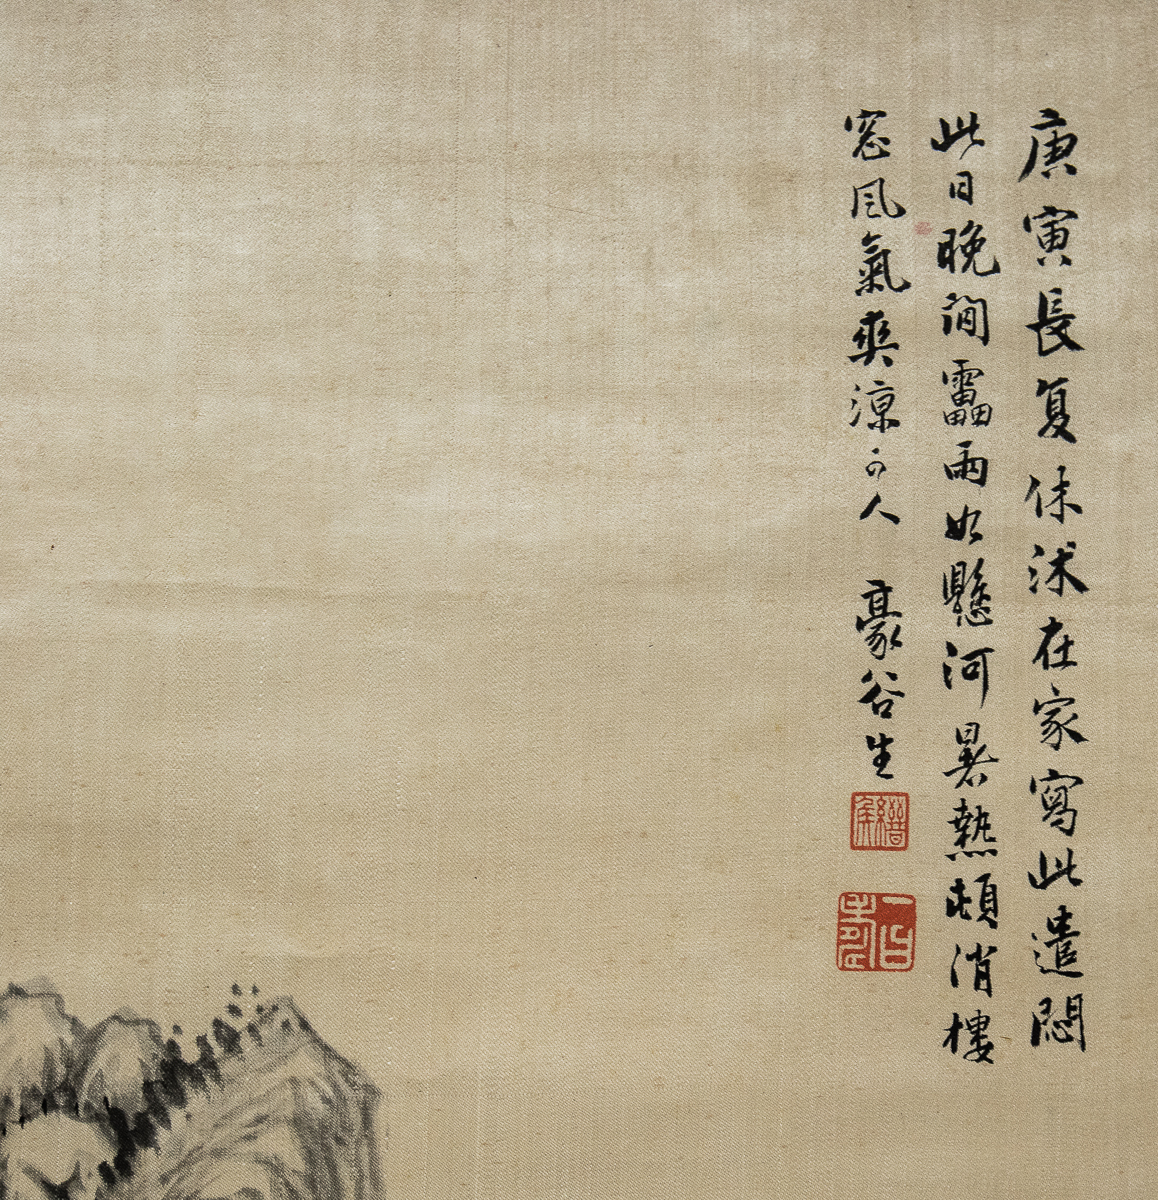 庚寅長夏休沐在家寫此遣悶
此日晚間靁雨如懸河暑熱頓消樓
窓風氣爽涼可人 豪谷生